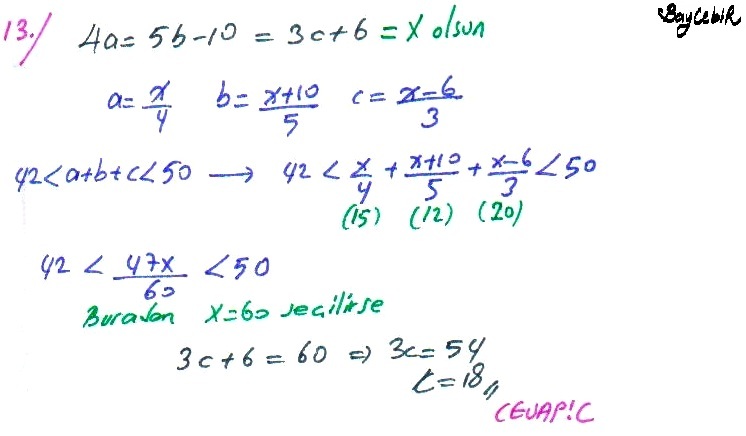 BaycebiR
13.) 4a = 5b - 10 = 3c + 6 = X olsun
a = x/4 b = x+10/5 c = x-6/3
42 < a+b+c < 50 → 42 < x/4 + x+10/5 + x-6/3 < 50
(15) (12) (20)
42 < 47x/60 < 50
Buradan X=60 seçilirse
3c + 6 = 60 ⇒ 3c = 54
c = 18,,
CEVAP: C